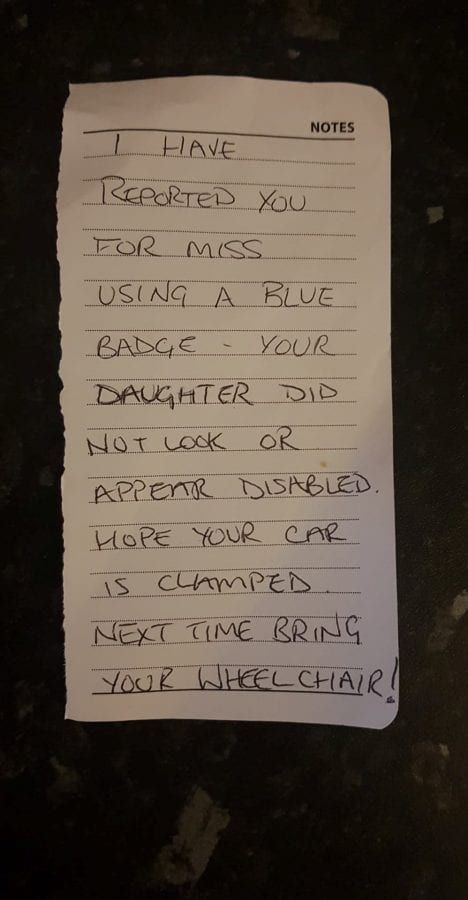 NOTES
I HAVE
REPORTED YOU
FOR MISS
USING A BLUE
BADGE - YOUR
DAUGHTER DID
NOT LOOK OR
APPEAR DISABLED.
HOPE YOUR CAR
IS CLAMPED.
NEXT TIME BRING
YOUR WHEELCHAIR!